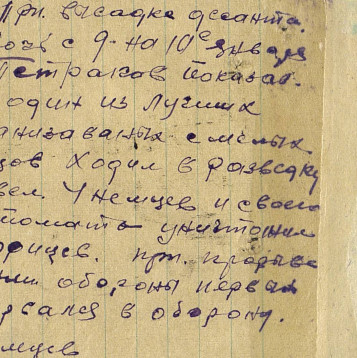 При. высадке десанта.
с 9. на 10е января
Петраков показал
один из лучших
анизаваных смелых
цов ходил в разведку
вел. 7 немцев и своего
томата уничтожил
рицев. при. прорыве
нии обороны первым
рвался в оборону.
мцев